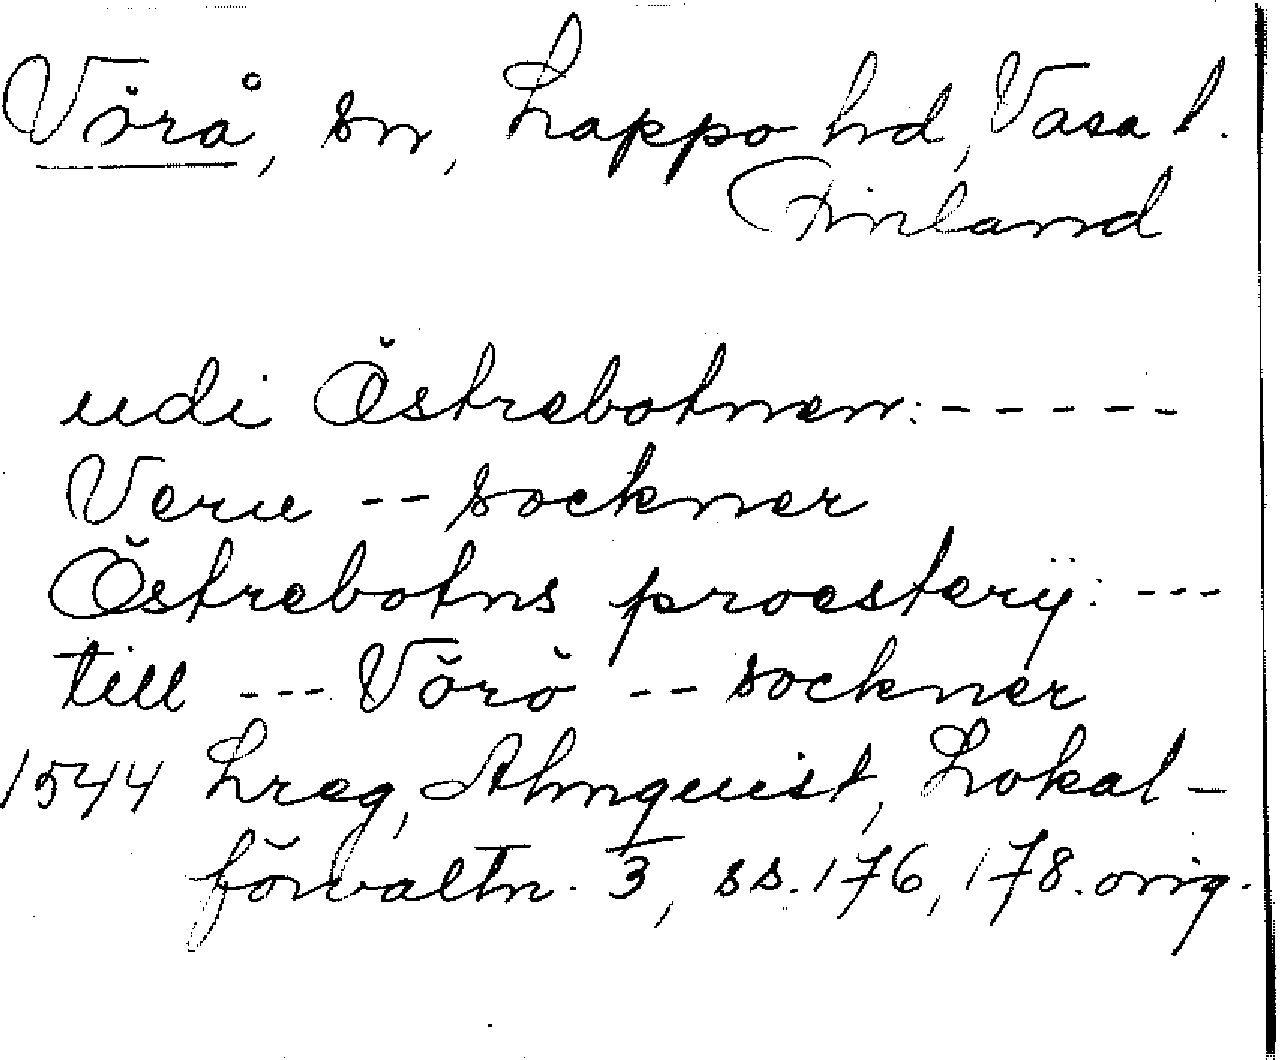 Vörå, sn, Lappo hd, Vasa l.
Finland
udi Östrebotnen: - - - - -
Veru -- sockner
Östrebotns proesterij: ---
till --- Vörö -- sockner
1544 Lreg, Almquist, Lokal-
förvaltn. 3, ss. 176, 178. orig.